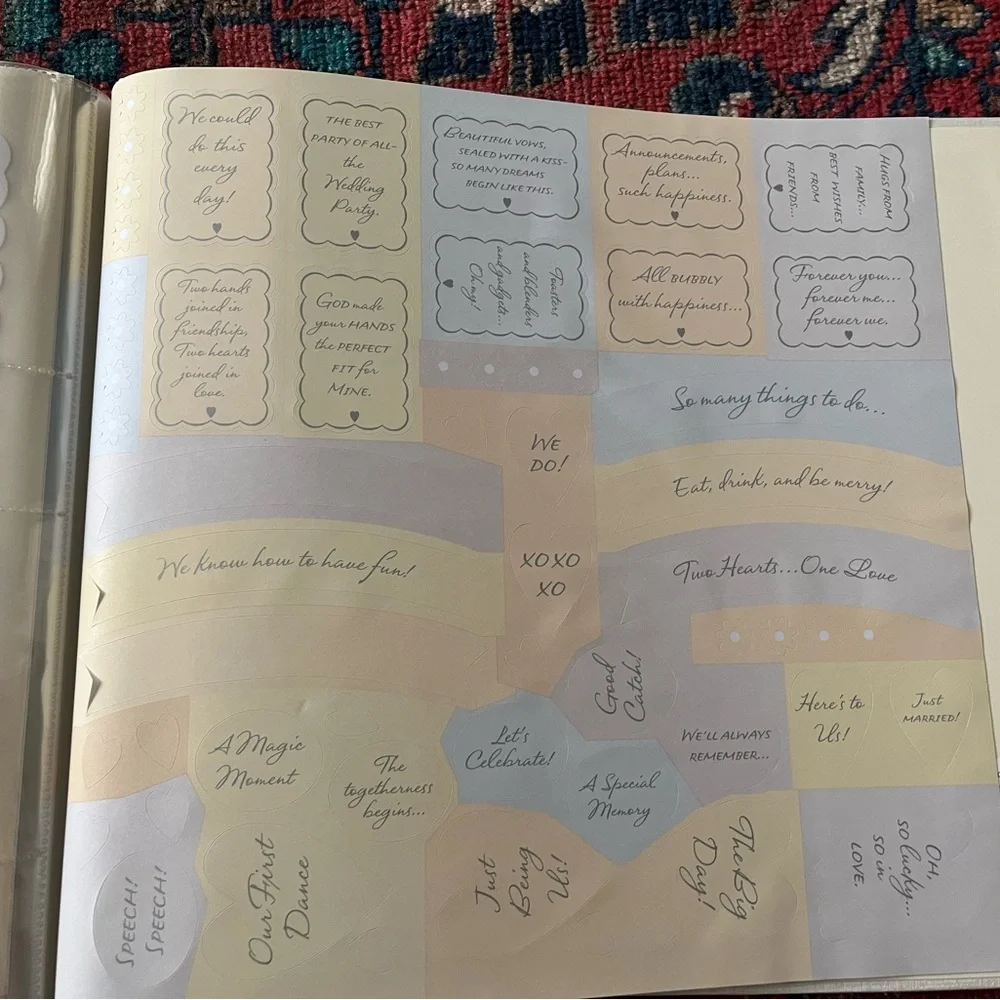 We could
do this
every
day!
THE BEST
PARTY OF ALL-
the
Wedding
Party.
BEAUTIFUL VOWS,
SEALED WITH A KISS-
SO MANY DREAMS
BEGIN LIKE THIS.
Announcements,
plans...
such happiness.
HUGS FROM
FAMILY...
BEST WISHES
FROM
FRIENDS...
Two hands
joined in
friendship,
Two hearts
joined in
love.
GOD made
your HANDS
the PERFECT
FIT for
MINE.
Toasters
and blenders
and gadgets...
Oh my!
All BUBBLY
with happiness...
Forever you...
forever me...
forever we.
So many things to do...
WE
DO!
Eat, drink, and be merry!
We know how to have fun!
XOXO
XO
Two Hearts...One Love
Good
Catch!
Here's to
Us!
Just
MARRIED!
A Magic
Moment
Let's
Celebrate!
WE'LL ALWAYS
REMEMBER...
The
togetherness
begins...
A Special
Memory
SPEECH!
SPEECH!
Our First
Dance
Just
Being
Us!
The Big
Day!
OH,
so lucky...
so in
LOVE.